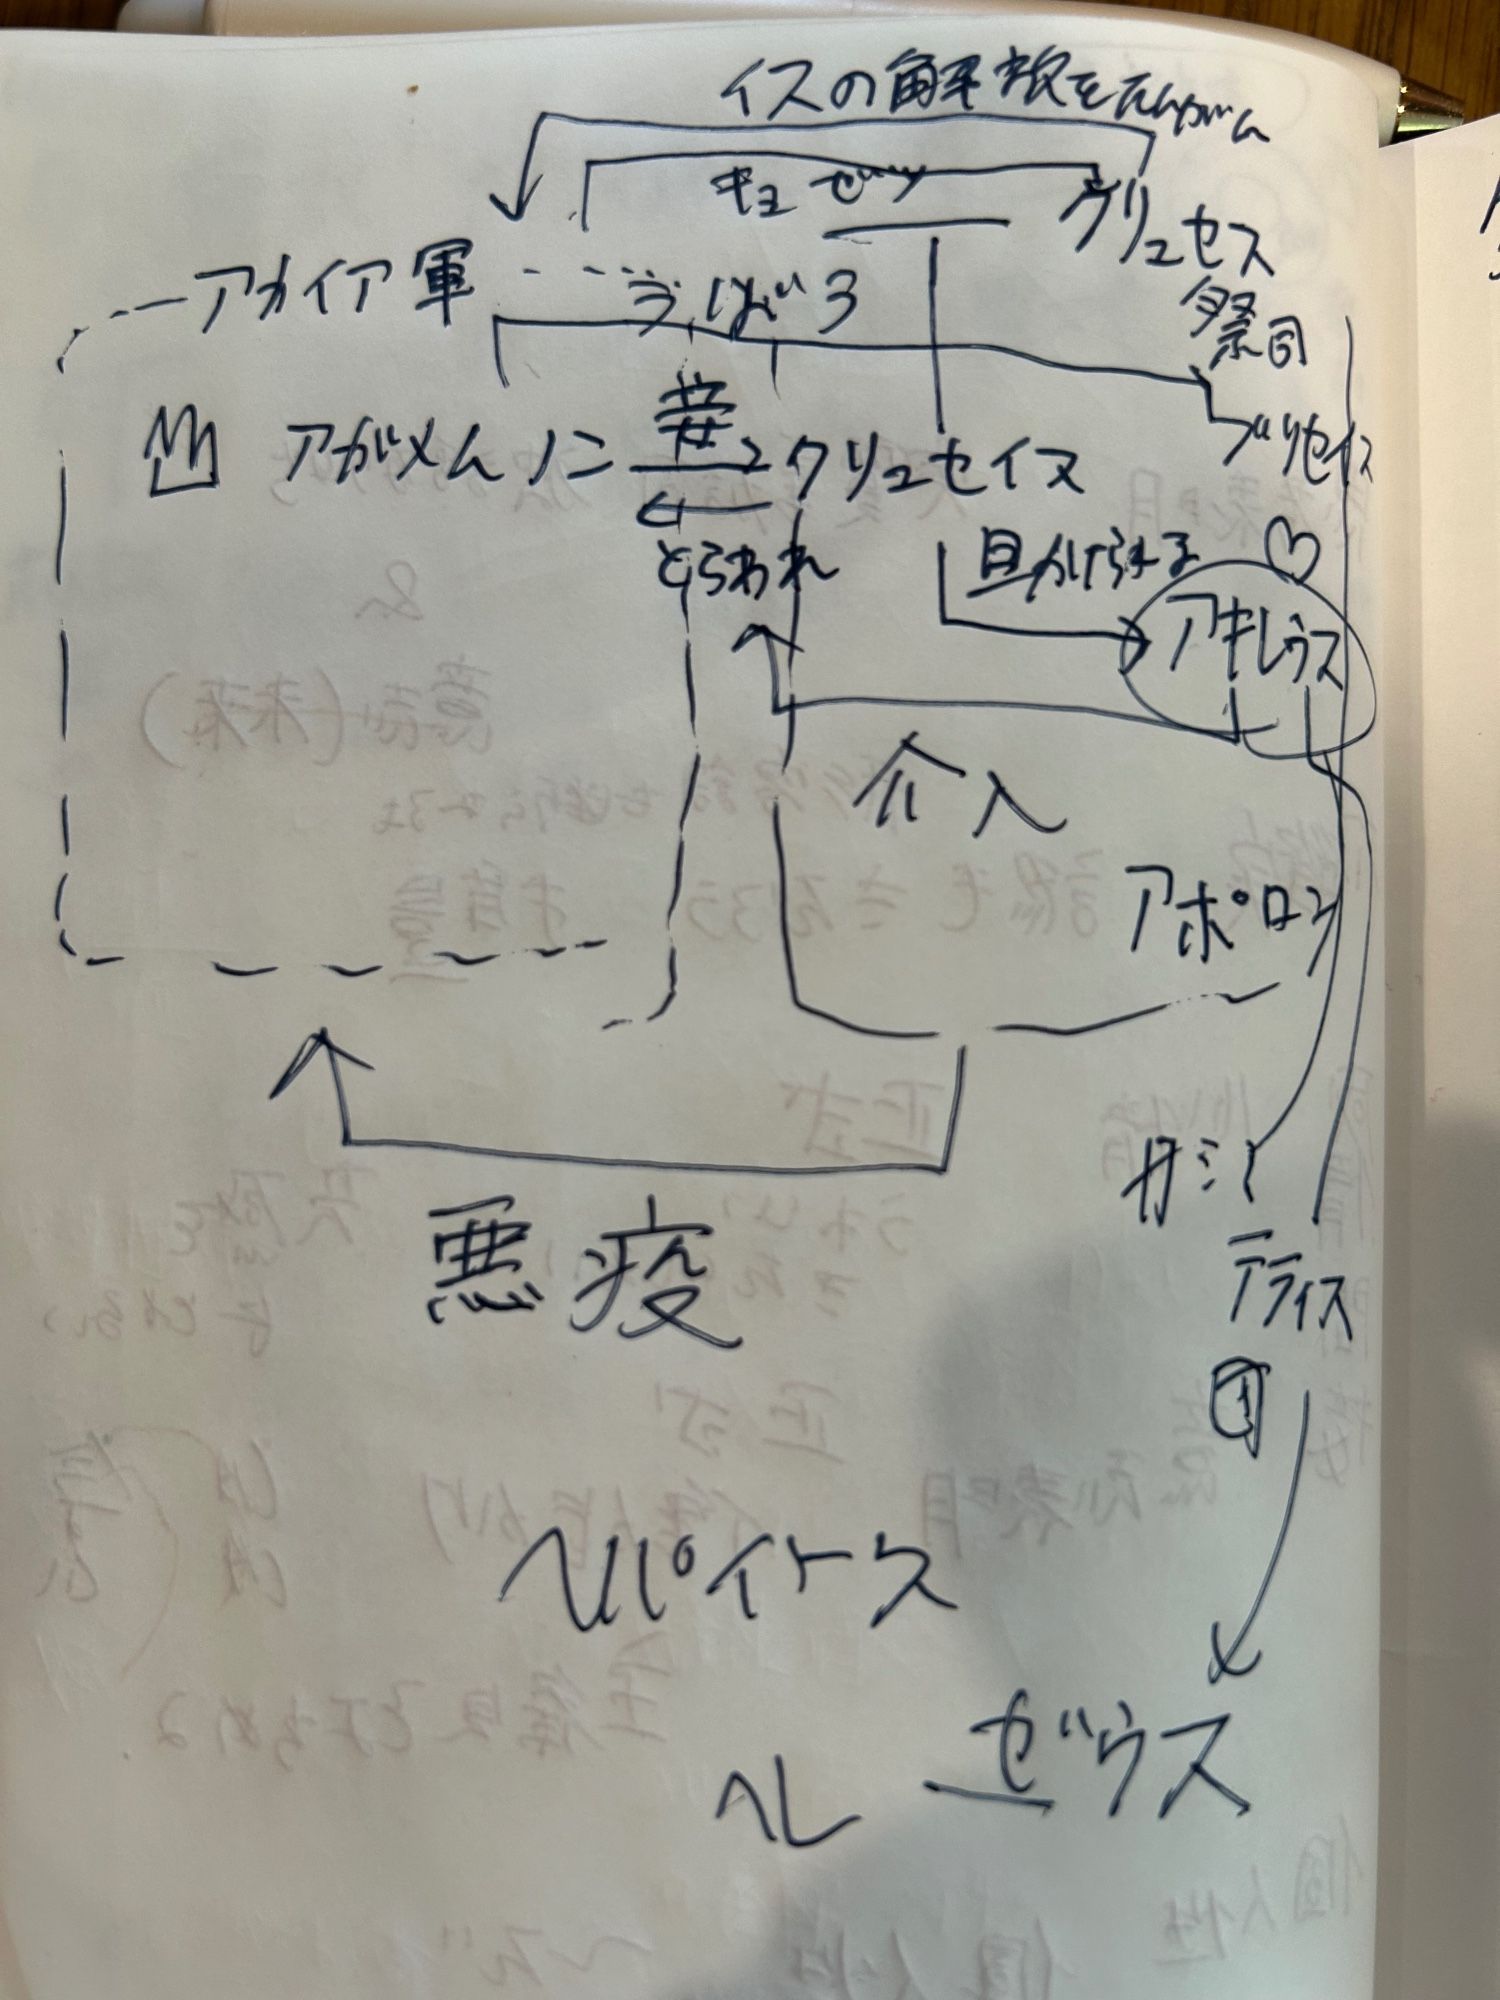 イスの解放をたんがん
キョゼツ
クリュセス
祭司
アカイア軍
うばう
ブリセイス
アガメムノン
妾
クリュセイス
とらわれ
目かけられる
アキレウス
介入
アポロン
悪疫
テティス
ヘパイトス
ゼウス
ヘレ